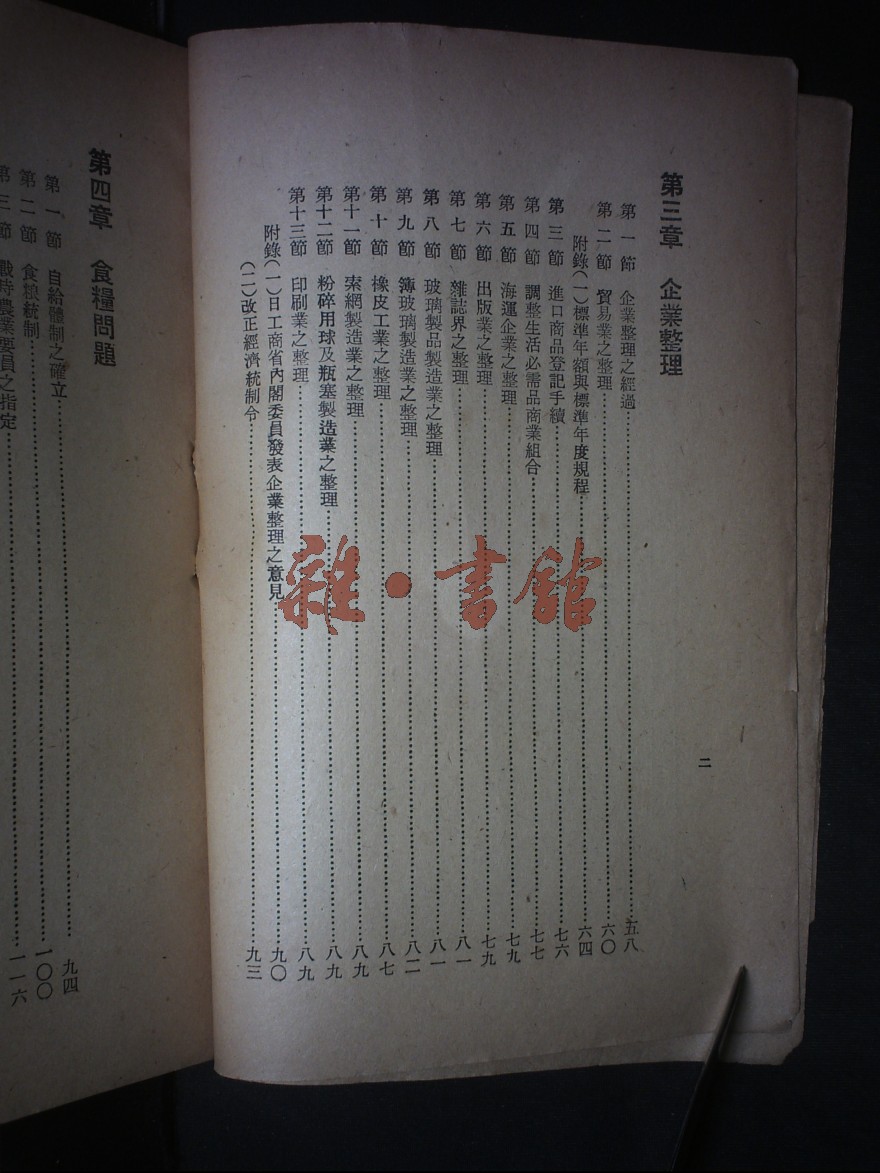 第三章　企業整理
第一節　企業整理之經過……五八
第二節　貿易業之整理……六〇
附錄(一)標準年額與標準年度規程……六四
第三節　進口商品登記手續……七六
第四節　調整生活必需品商業組合……七七
第五節　海運企業之整理……七九
第六節　出版業之整理……七九
第七節　雜誌界之整理……八一
第八節　玻璃製品製造業之整理……八一
第九節　簿玻璃製造業之整理……八二
第十節　橡皮工業之整理……八七
第十一節　索網製造業之整理……八九
第十二節　粉碎用球及瓶塞製造業之整理……八九
第十三節　印刷業之整理……八九
附錄(一)日工商省內閣委員發表企業整理之意見……九〇
(二)改正經濟統制令……九三
二
第四章　食糧問題
第一節　自給體制之確立……九四
第二節　食粮統制……一〇〇
第三節　戰時農業要員之指定……一一六
雜・書館